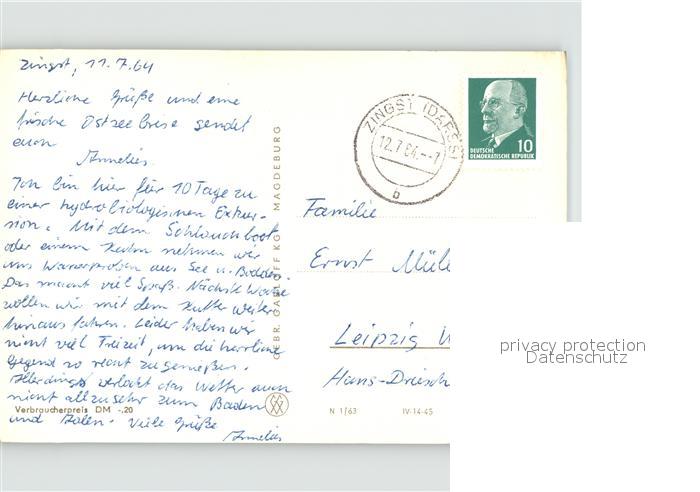 Zingst, 11.7.64
Herzliche Grüße und eine
frische Ostseebrise sendet
euch
Annelies.
Ich bin hier für 10 Tage zu
einer hydrobiologischen Exkur-
sion. Mit dem Schlauchboot
oder einem Kahn nehmen wir
uns Wasserproben aus See u. Bodden.
Das macht viel Spaß. Nächste Woche
wollen wir mit dem Kutter weiter
hinaus fahren. Leider haben wir
nicht viel Freizeit, um die herrliche
Gegend so recht zu genießen.
Allerdings verlockt das Wetter auch
nicht allzusehr zum Baden
und Aalen. Viele Grüße
Annelies
Verbraucherpreis DM -.20
GEBR. GARLOFF KG. MAGDEBURG
ZINGST (DARSS)
12.7.64.--7
b
10
DEUTSCHE
DEMOKRATISCHE REPUBLIK
Familie
Ernst Mül
Leipzig W
Hans-Driesch
N 1/63 IV-14-45
privacy protection
Datenschutz